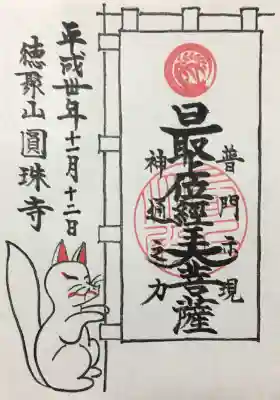 普門示現
最位經王大菩薩
神通之力
平成卅年十一月十二日
徳聚山圓珠寺